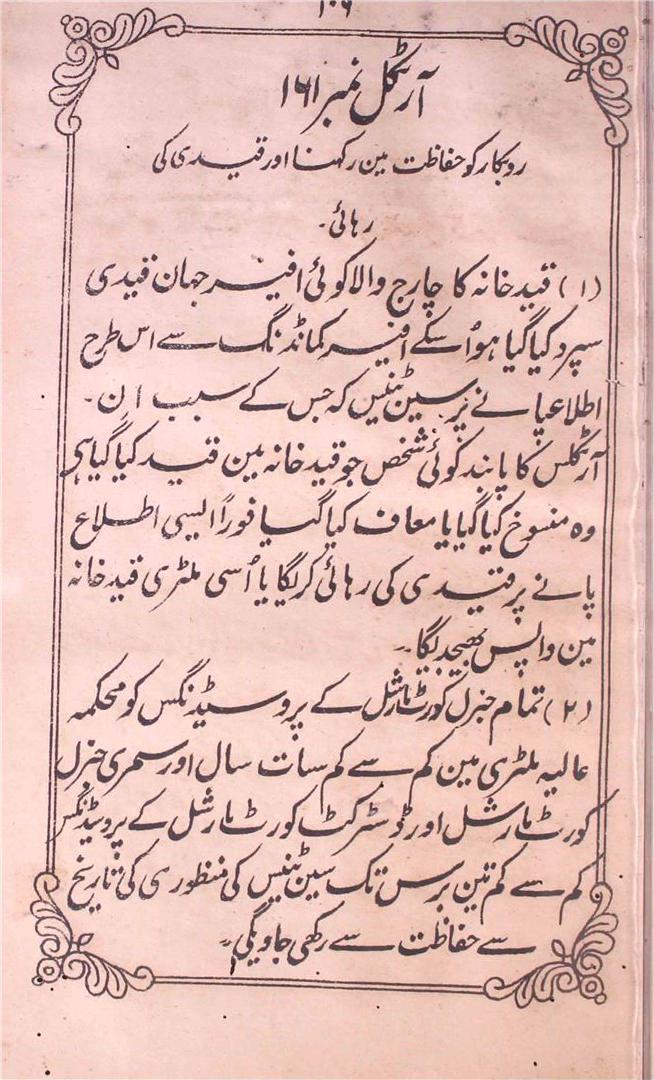 ۱۰۶
آرٹکل نمبر ۱۶۱
روبکار کو حفاظت مین رکہنا اور قیدی کی
رہائی۔
(۱) قید خانہ کا چارج والا کوئی افیسر جہان قیدی
سپرد کیا گیا ہو اُسکے افیسر کمانڈنگ سے اس طرح
اطلاع پانے پر سین ٹنیس کہ جس کے سبب ان۔
آرٹکلس کا پابند کوئی شخص جو قید خانہ مین قید کیا گیا ہی
وہ منسوخ کیا گیا یا معاف کیا گیا فوراً ایسی اطلاع
پانے پر قیدی کی رہائی کریگا یا اُسی ملٹری قید خانہ
مین واپس بھیجدیگا۔
(۲) تمام جنرل کورٹ مارشل کے پروسیڈنگس کو محکمہ
عالیہ ملٹری مین کم سے کم سات سال اور سمری جنرل
کورٹ مارشل اور ڈسٹرکٹ کورٹ مارشل کے پروسیڈنگس
کم سے کم تین برس تک سین ٹنیس کی منظوری کی تاریخ
سے حفاظت سے رکھی جاویگی۔